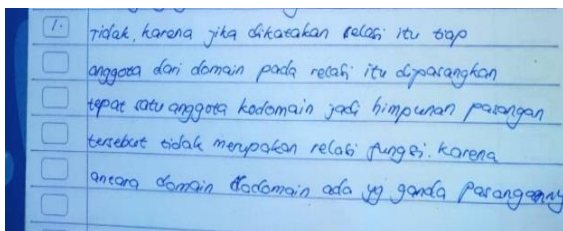 1. Tidak, karena jika dikatakan relasi itu tiap
anggota dari domain pada relasi itu dipasangkan
tepat satu anggota kodomain jadi himpunan pasangan
tersebut tidak merupakan relasi fungsi. Karena
antara domain kodomain ada yg ganda pasangannny